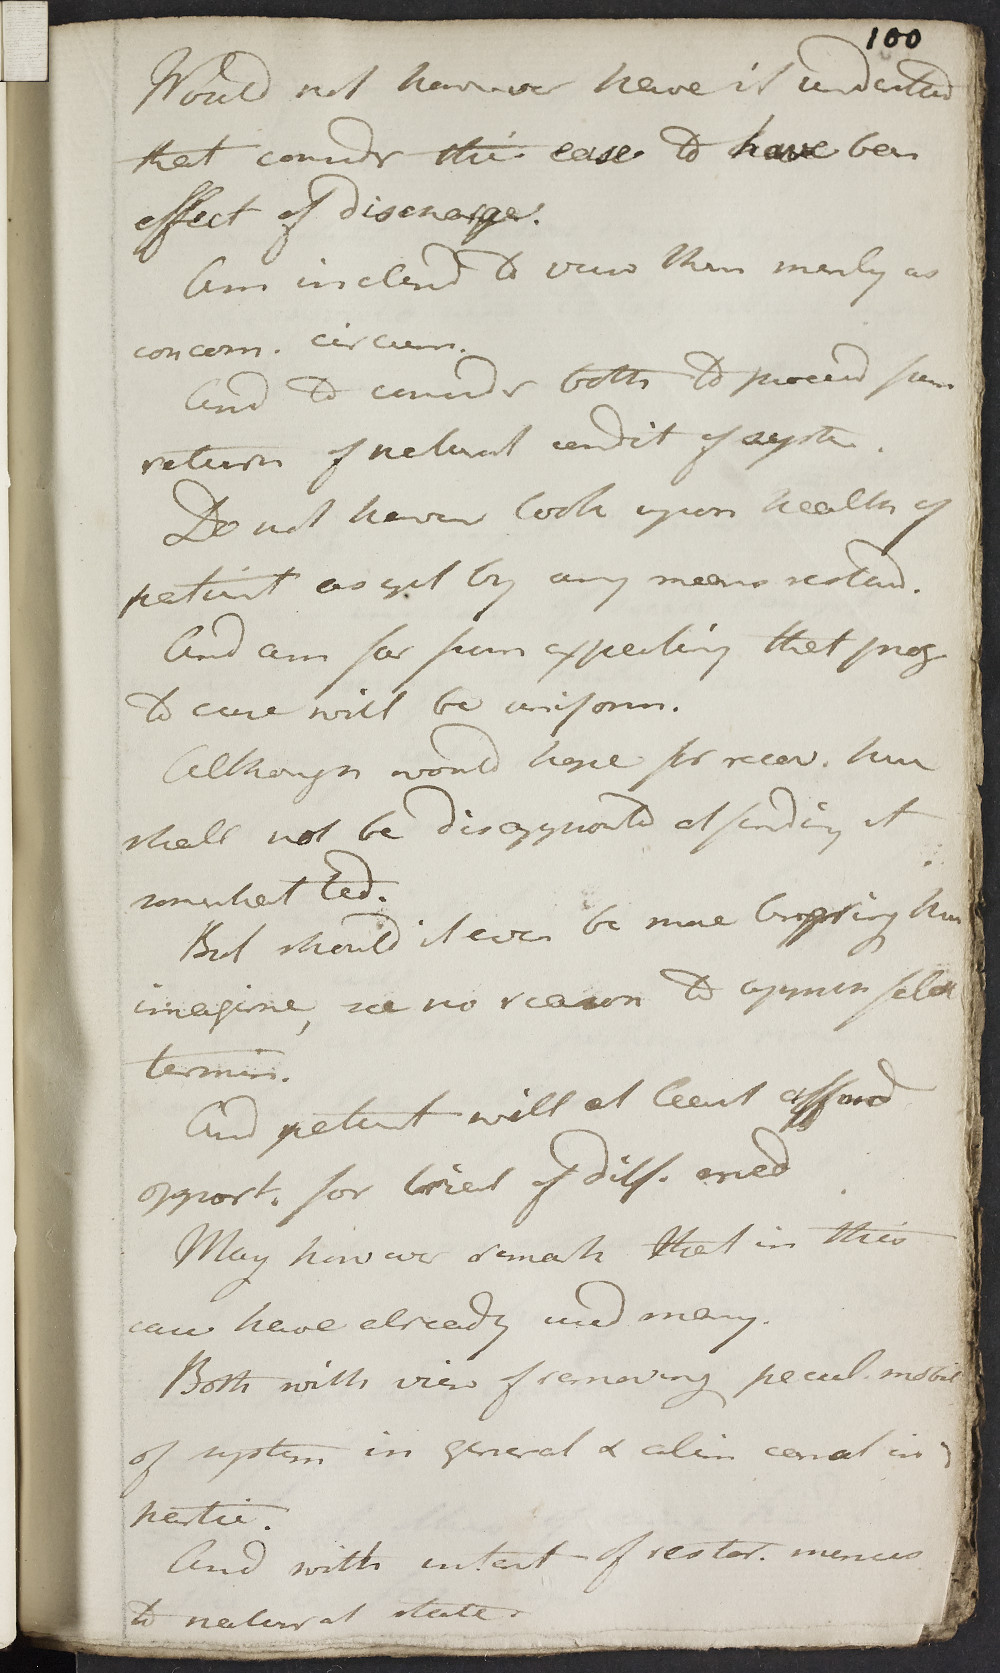 100
Would not however have it understood
that considr this ease to have been
effect of discharge.
Am inclend to view them merely as
concom. circum.
And to considr both to proceed from
return of natural condit of system.
Do not however look upon health of
patient as yet by any means restord.
And am far from expecting that prog
to cure will be uniform.
Although would hope for recov. huu
shall not be disappointd at finding it
somewhat ted.
But should it even be more
imagine, see no reason to apprehn fatal
termin.
And patient will at least afford
opport. for trial of diff. med
May however remark that in this
case have already used many.
Both with view of removing pecul. mobil
of system in general & alim canal in
partic.
And with intent of restor. menses
to natural state.